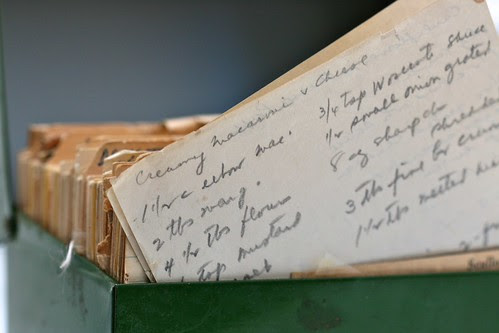 Creamy Macaroni & Cheese
1 1/2 c elbow mac.
2 tbs marg.
4 1/2 tbs flour
tsp mustard
3/4 tsp Worcest. sauce
1/2 small onion grated
8 oz sharp ch
3 tbs fine br crum
1 1/2 tbs melted